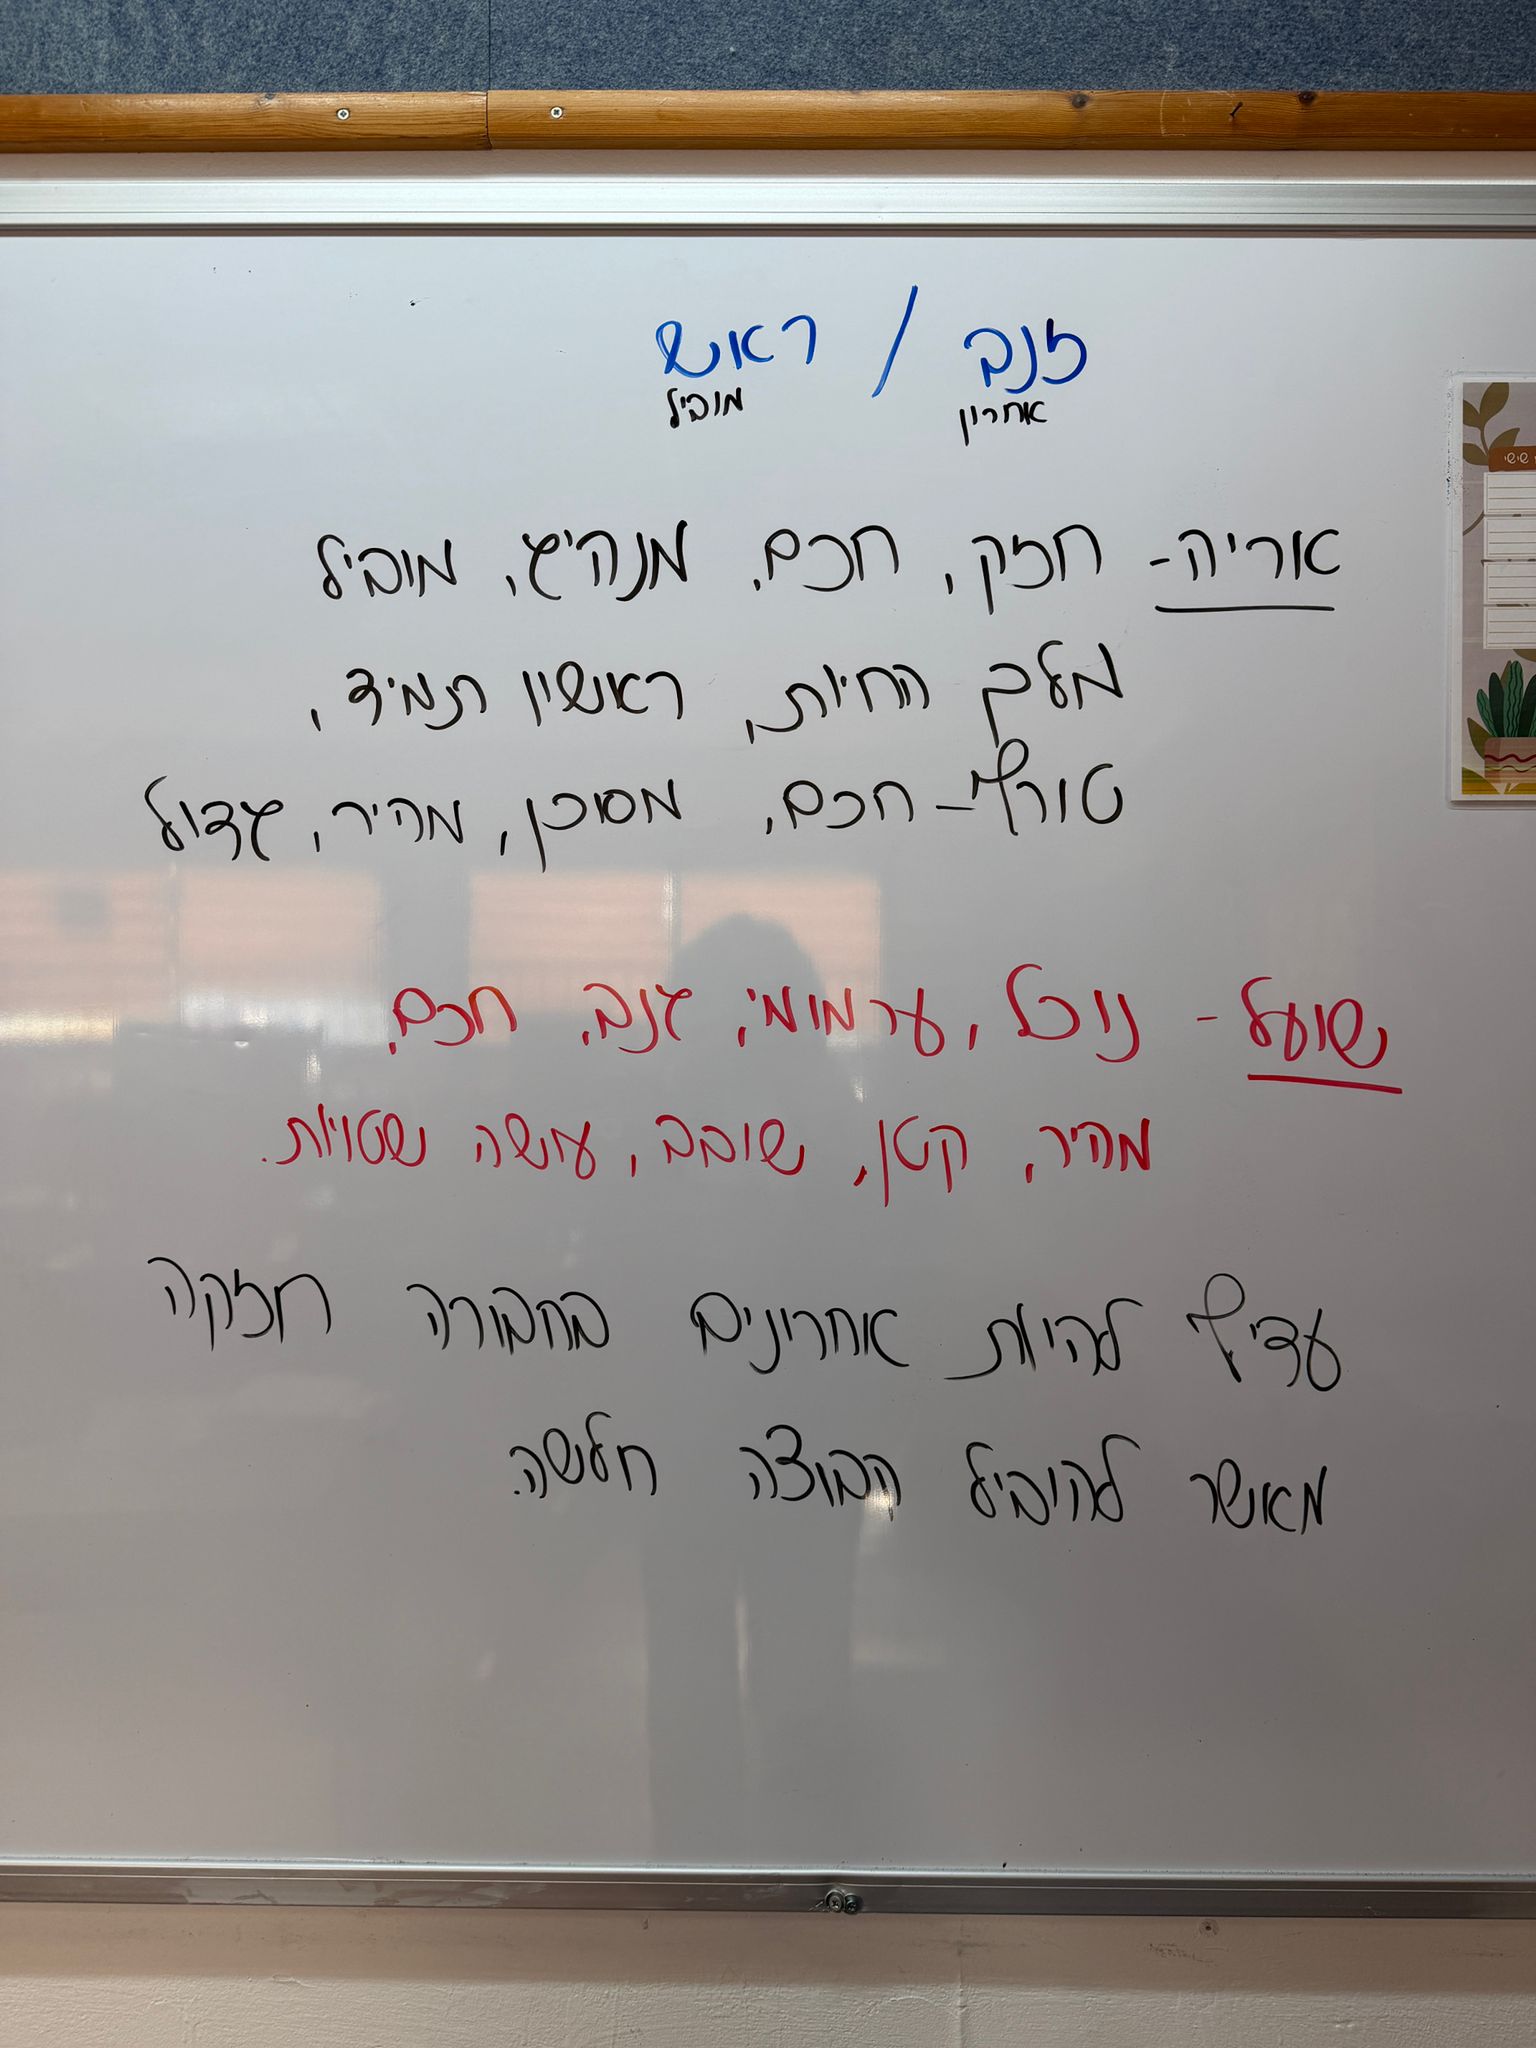 זנב / ראש
אחרון מוביל
אריה- חזק, חכם, מנהיג, מוביל
מלך החיות, ראשון תמיד,
טורף- חכם, מסוכן, מהיר, גדול
שועל- נוכל, ערמומי, גנב, חכם,
מהיר, קטן, שובב, עושה שטויות.
עדיף להיות אחרונים בחבורה חזקה
מאשר להוביל קבוצה חלשה.
שישי